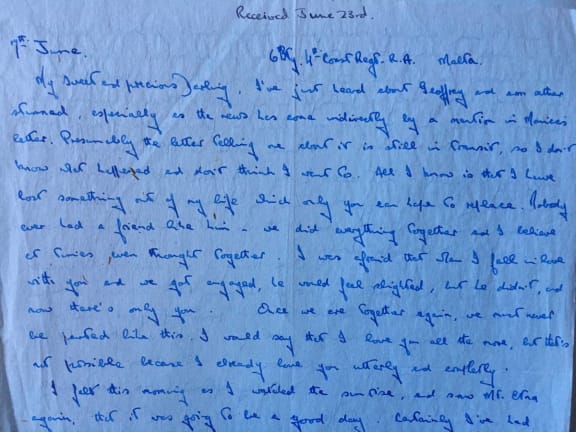 Received June 23rd.
7th June. 6 Bty. 4th Coast Regt. R.A. Malta.
My sweet and precious Darling, I've just heard about Geoffrey and am utter
stunned, especially as the news has come indirectly by a mention in Monica's
letter. Presumably the letter telling me about it is still in transit, so I don't
know what happened and don't think I want to. All I know is that I have
lost something out of my life which only you can hope to replace. Nobody
ever had a friend like him - we did everything together and I believe
at times even thought together. I was afraid that when I fell in love
with you and we got engaged, he would feel slighted, but he didn't, and
now there's only you. Once we are together again, we must never
be parted like this. I would say that I love you all the more, but that's
not possible because I already love you utterly and completely.
I felt this morning as I watched the sun rise, and saw Mt. Etna
again, that it was going to be a good day. Certainly I've had